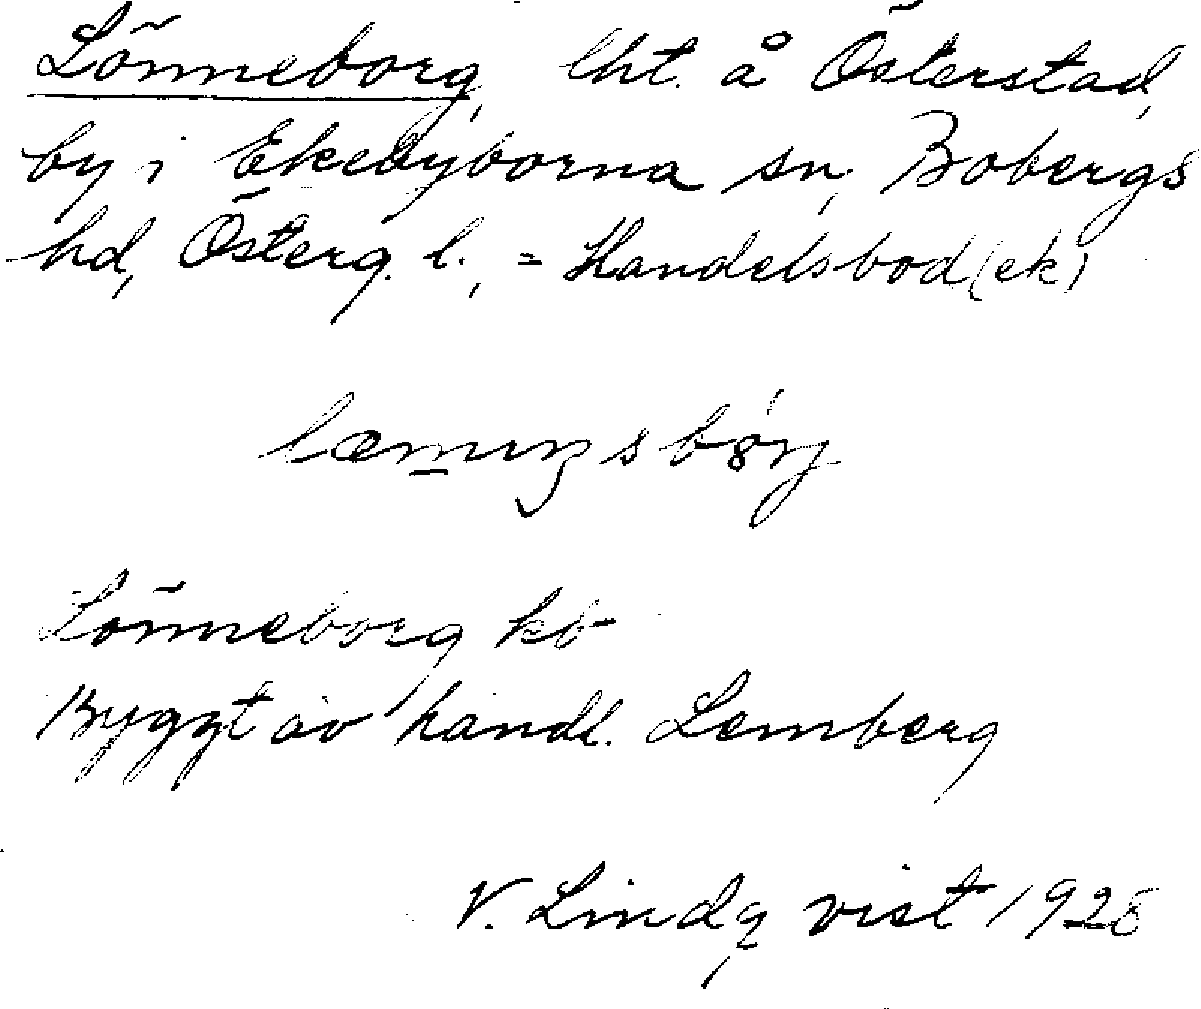 Lönneborg, lht. å Österstad,
by i Ekebyborna sn, Bobergs
hd, Österg. l., = Handelsbod (ek)
Lönneborg kb
Byggt av handl. Lemberg
V. Lindqvist 1928